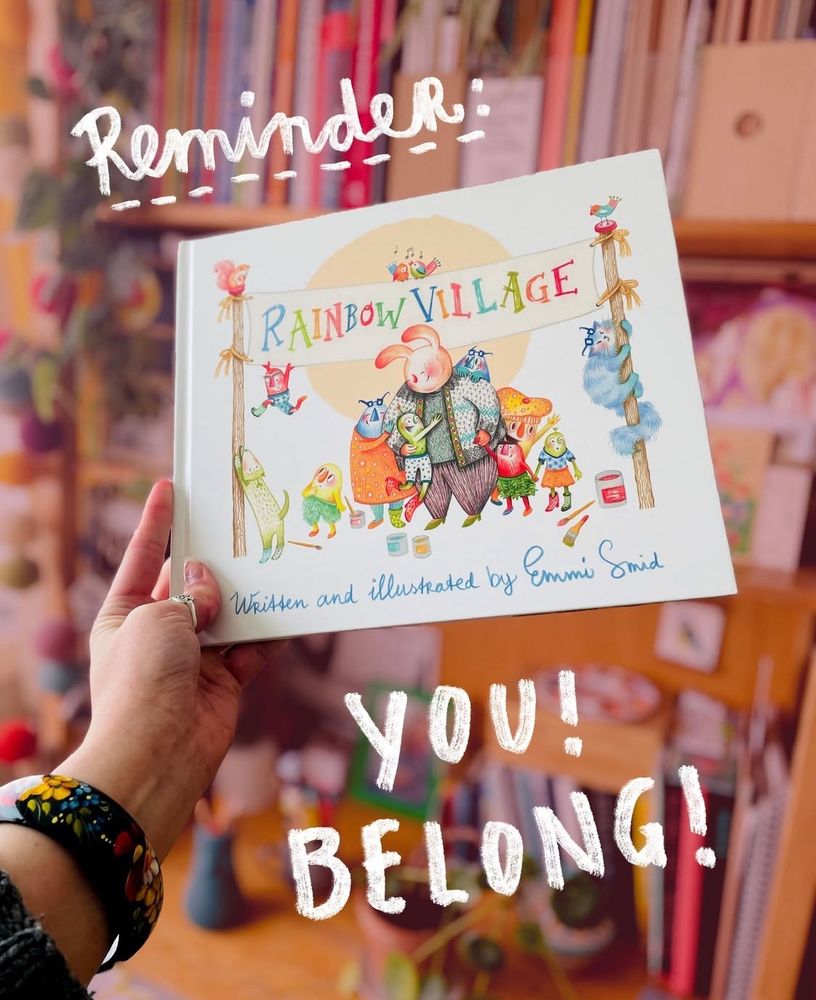 Reminder:
RAINBOW VILLAGE
Written and illustrated by Emmi Smid
YOU!
BELONG!